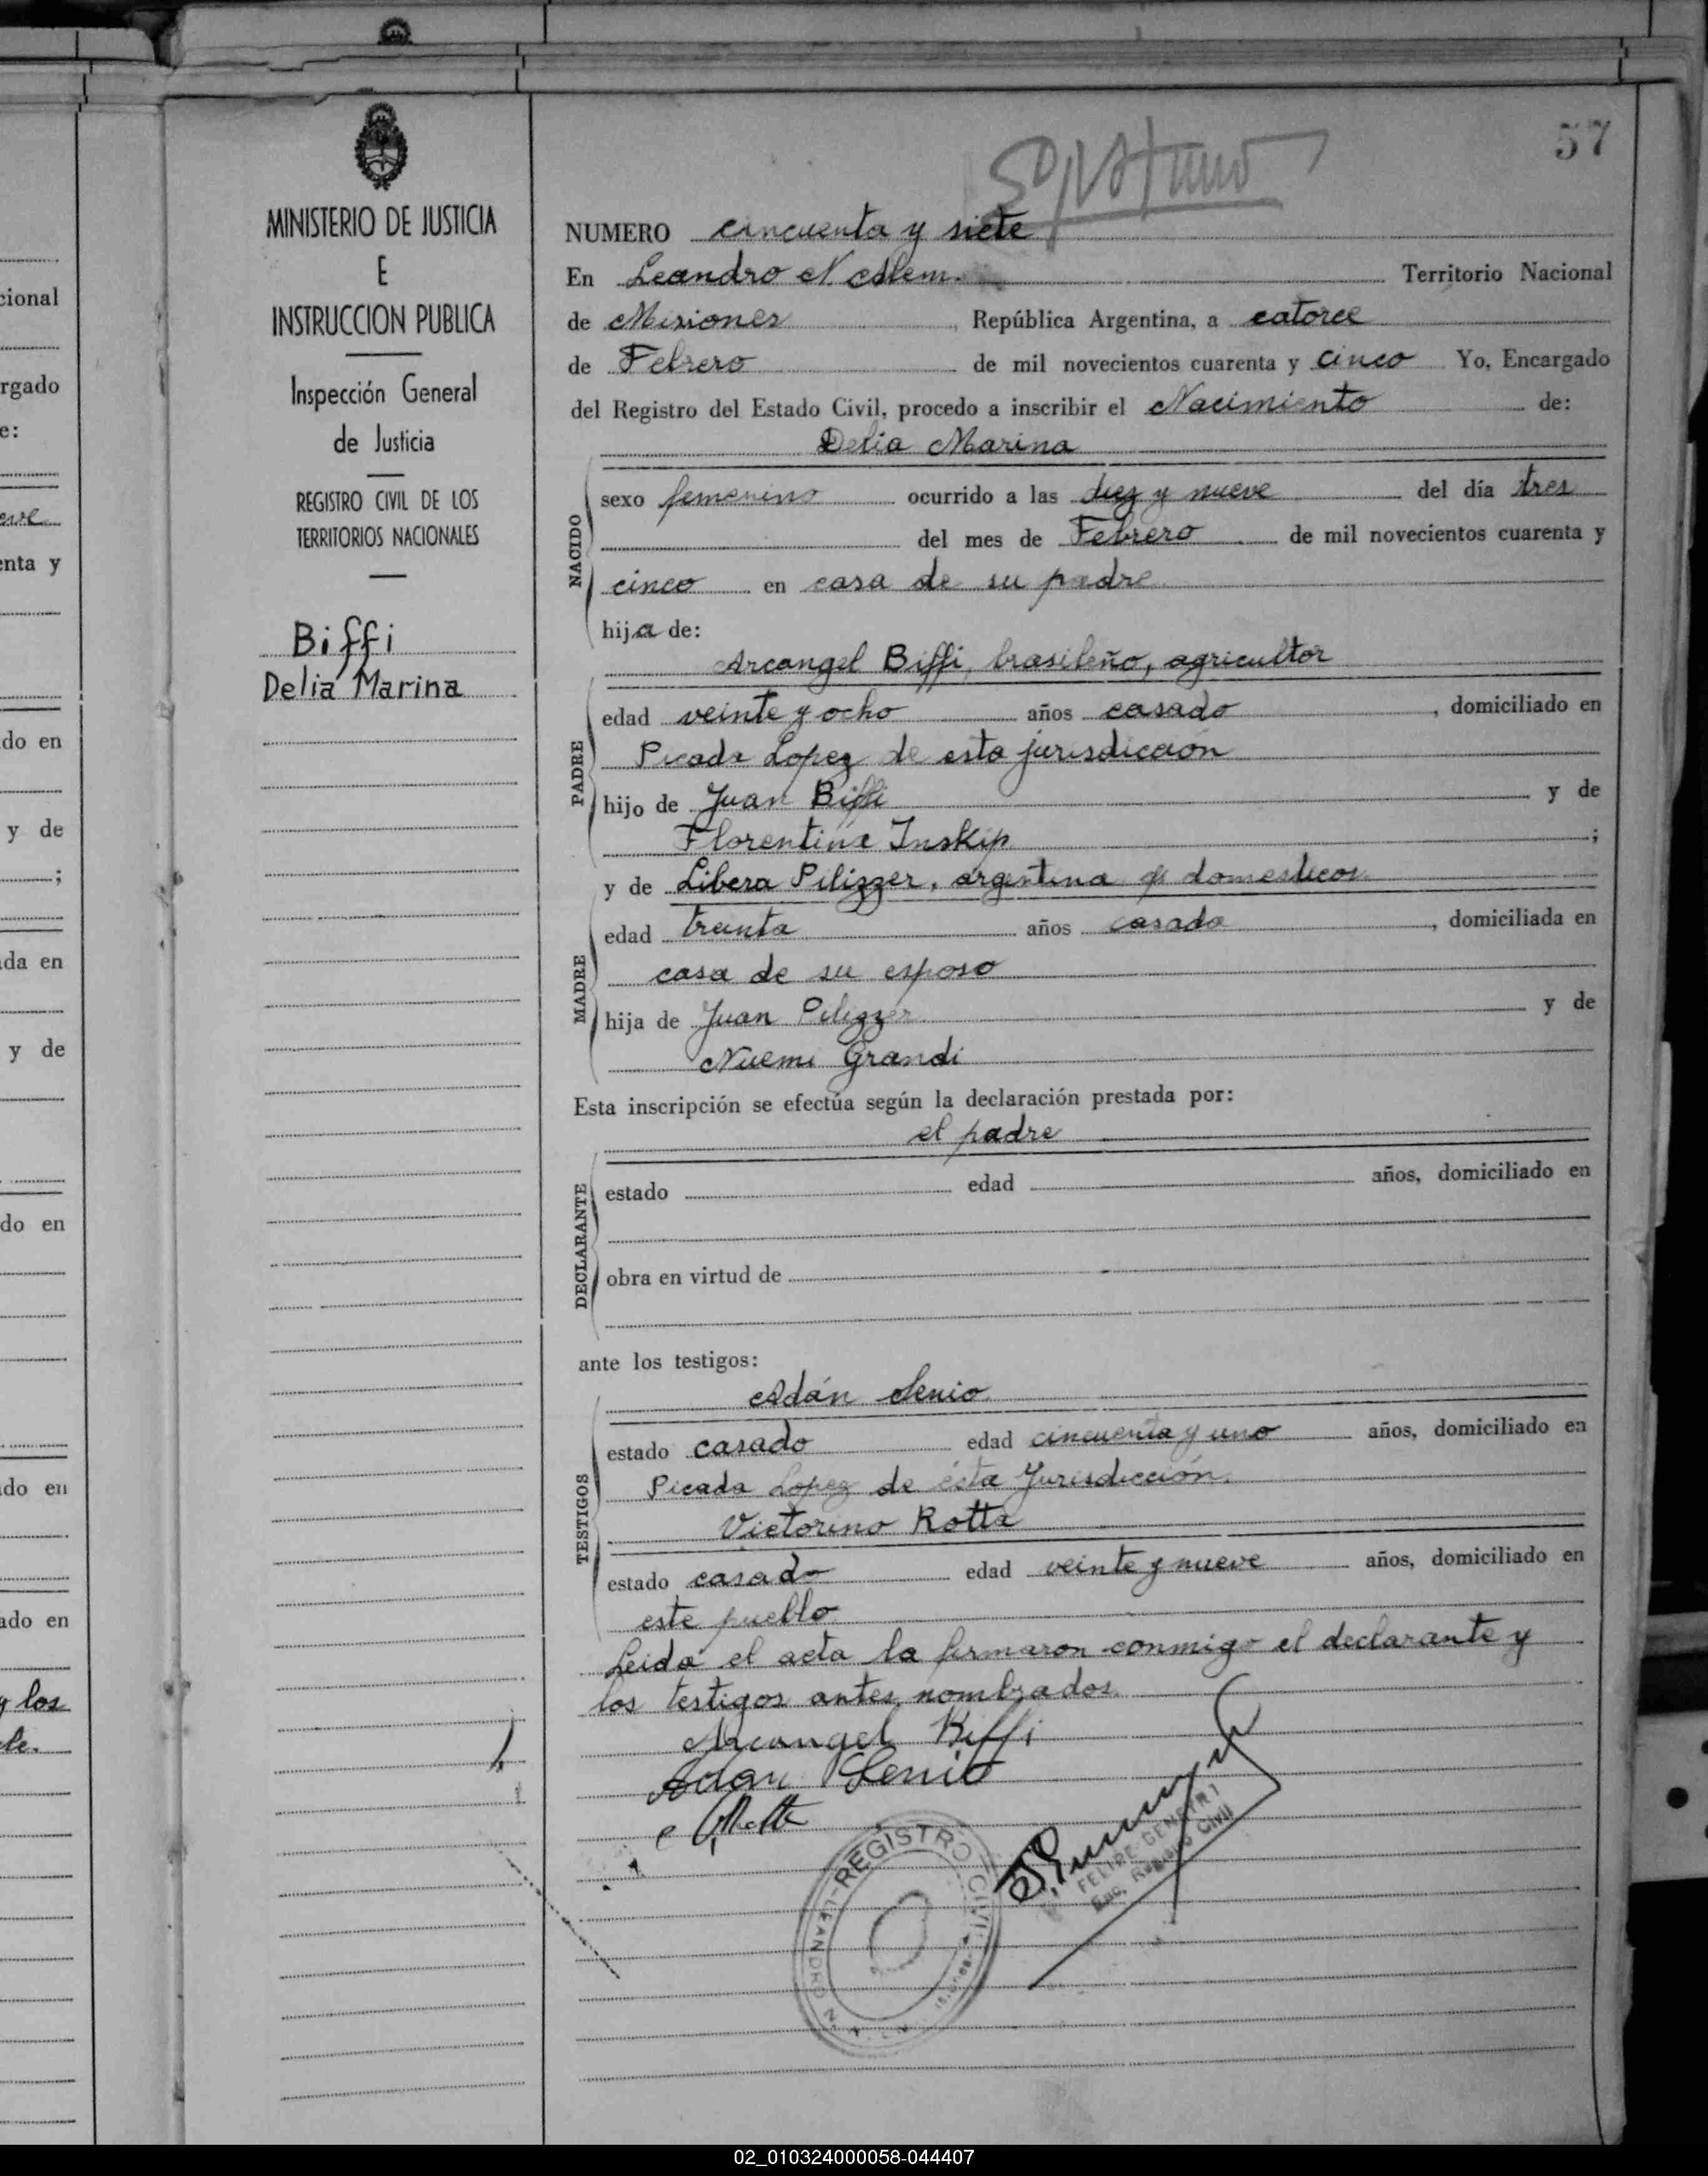 cional
rgado
e:
eve
enta y
do en
y de
;
da en
y de
do en
do en
ado en
y los
le.
MINISTERIO DE JUSTICIA
E
INSTRUCCION PUBLICA
Inspección General
de Justicia
REGISTRO CIVIL DE LOS
TERRITORIOS NACIONALES
Biffi
Delia Marina
57
NUMERO cincuenta y siete
En Leandro N Alem. Territorio Nacional
de Misiones, República Argentina, a catorce
de Febrero de mil novecientos cuarenta y cinco Yo, Encargado
del Registro del Estado Civil, procedo a inscribir el Nacimiento de:
Delia Marina
NACIDO
sexo femenino ocurrido a las diez y nueve del día tres
del mes de Febrero de mil novecientos cuarenta y
cinco en casa de su padre
hija de:
Arcangel Biffi, brasileño, agricultor
PADRE
edad veinte y ocho años casado, domiciliado en
Picada Lopez de esta jurisdicción
hijo de Juan Biffi y de
Florentina Inskip;
y de Libera Pilizzer, argentina q. domesticos
MADRE
edad treinta años casada, domiciliada en
casa de su esposo
hija de Juan Pilizzer y de
Nuemi Grandi
Esta inscripción se efectúa según la declaración prestada por:
el padre
DECLARANTE
estado edad años, domiciliado en
obra en virtud de
ante los testigos:
Adán Senio
TESTIGOS
estado casado edad cincuenta y uno años, domiciliado en
Picada Lopez de ésta Jurisdicción.
Victorino Rotta
estado casado edad veinte y nueve años, domiciliado en
este pueblo
Leida el acta la firmaron conmigo el declarante y
los testigos antes nombrados.
Arcangel Biffi
Adan Senio
Rotta
REGISTRO CIVIL
LEANDRO N.
FELIPE GEMETRI
Enc. Registro Civil
02_010324000058-044407